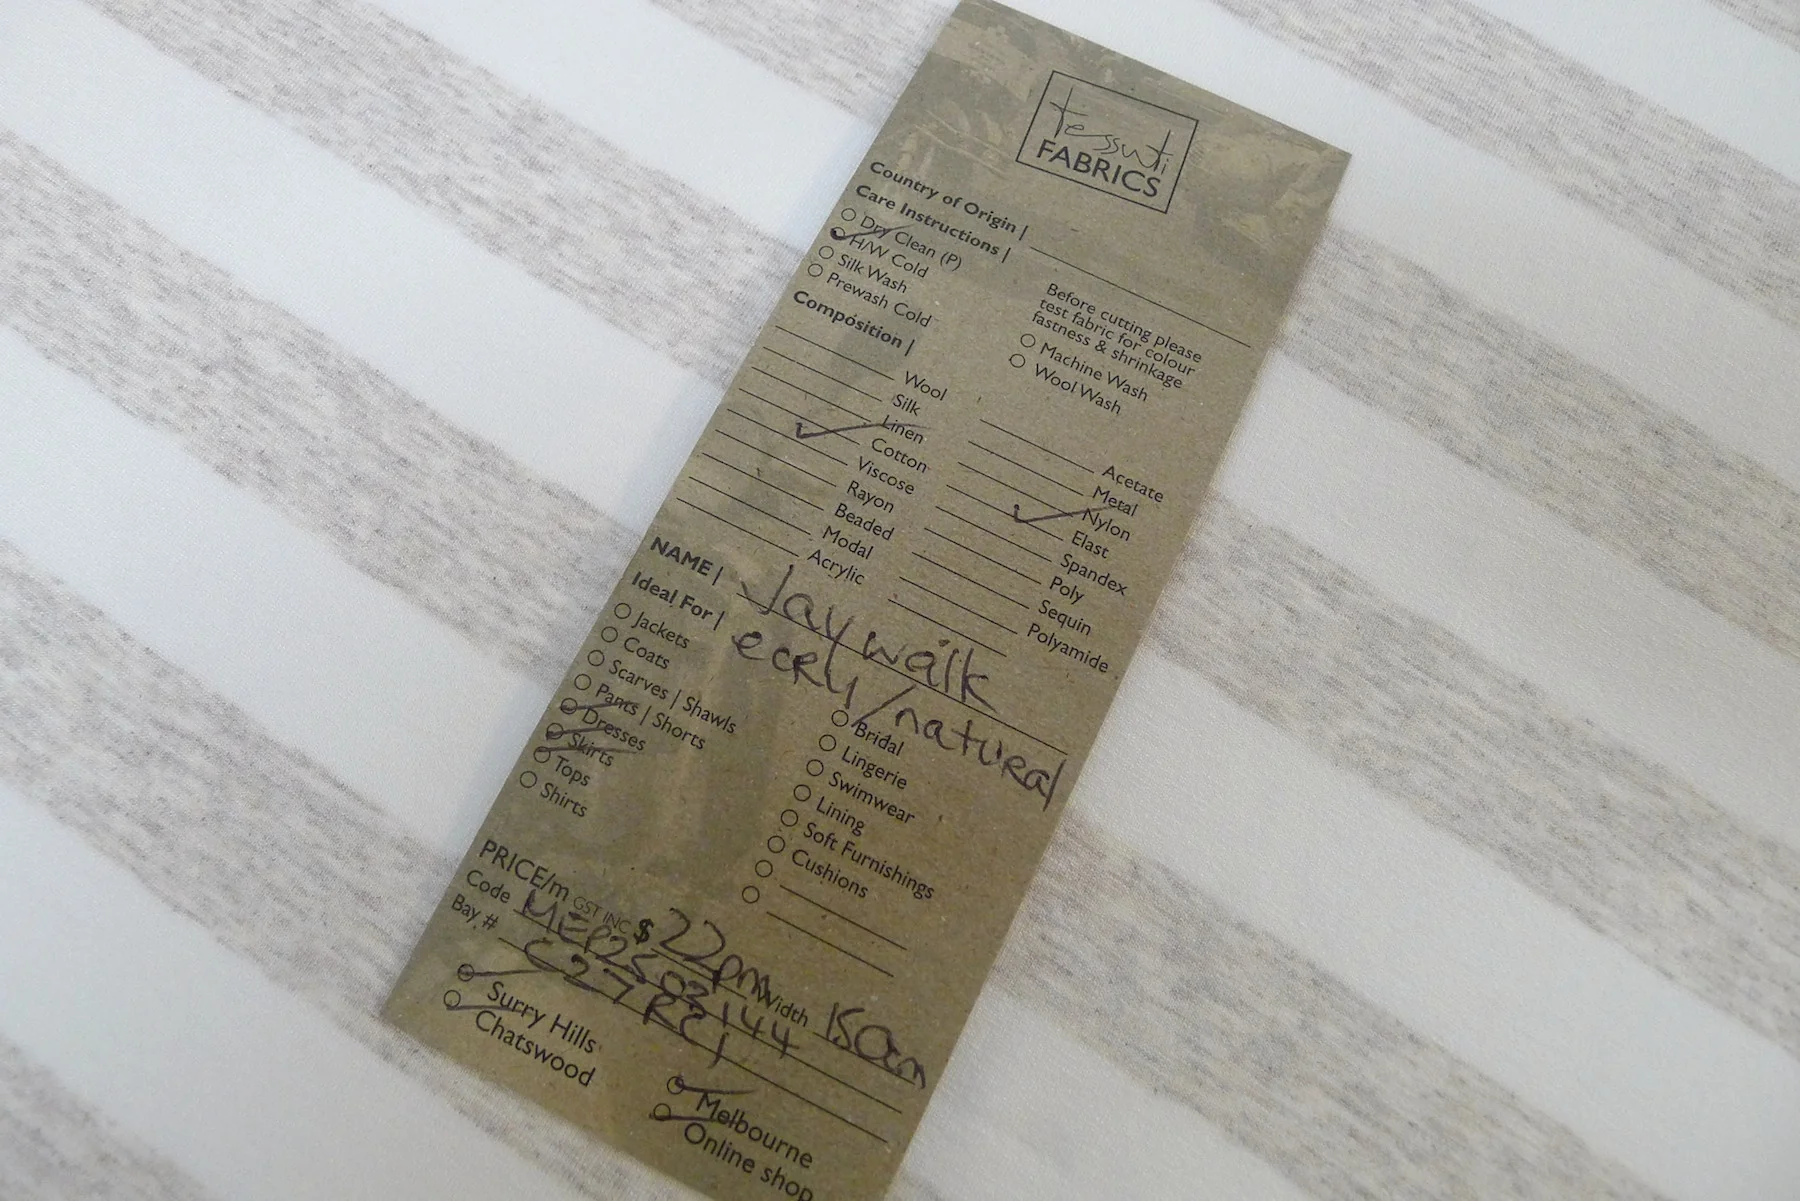 tessuti
FABRICS
Country of Origin |
Care Instructions |
Dry Clean (P)
H/W Cold
Silk Wash
Prewash Cold
Before cutting please
test fabric for colour
fastness & shrinkage
Machine Wash
Wool Wash
Composition |
Wool
Silk
Linen
Cotton
Viscose
Rayon
Beaded
Modal
Acrylic
Acetate
Metal
Nylon
Elast
Spandex
Poly
Sequin
Polyamide
NAME | Jaywalk
ecru/natural
Ideal For |
Jackets
Coats
Scarves | Shawls
Pants | Shorts
Dresses
Skirts
Tops
Shirts
Bridal
Lingerie
Swimwear
Lining
Soft Furnishings
Cushions
PRICE/m GST INC $ 22pm Width 150cm
Code MEP2503144
Bay #
Surry Hills
Chatswood
Melbourne
Online shop